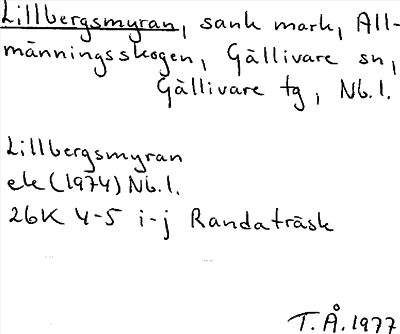 Lillbergsmyran, sank mark, All-
männingsskogen, Gällivare sn,
Gällivare tg, Nb.l.
Lillbergsmyran
ek (1974) Nb.l.
26K 4-5 i-j Randaträsk
T.Å.1977